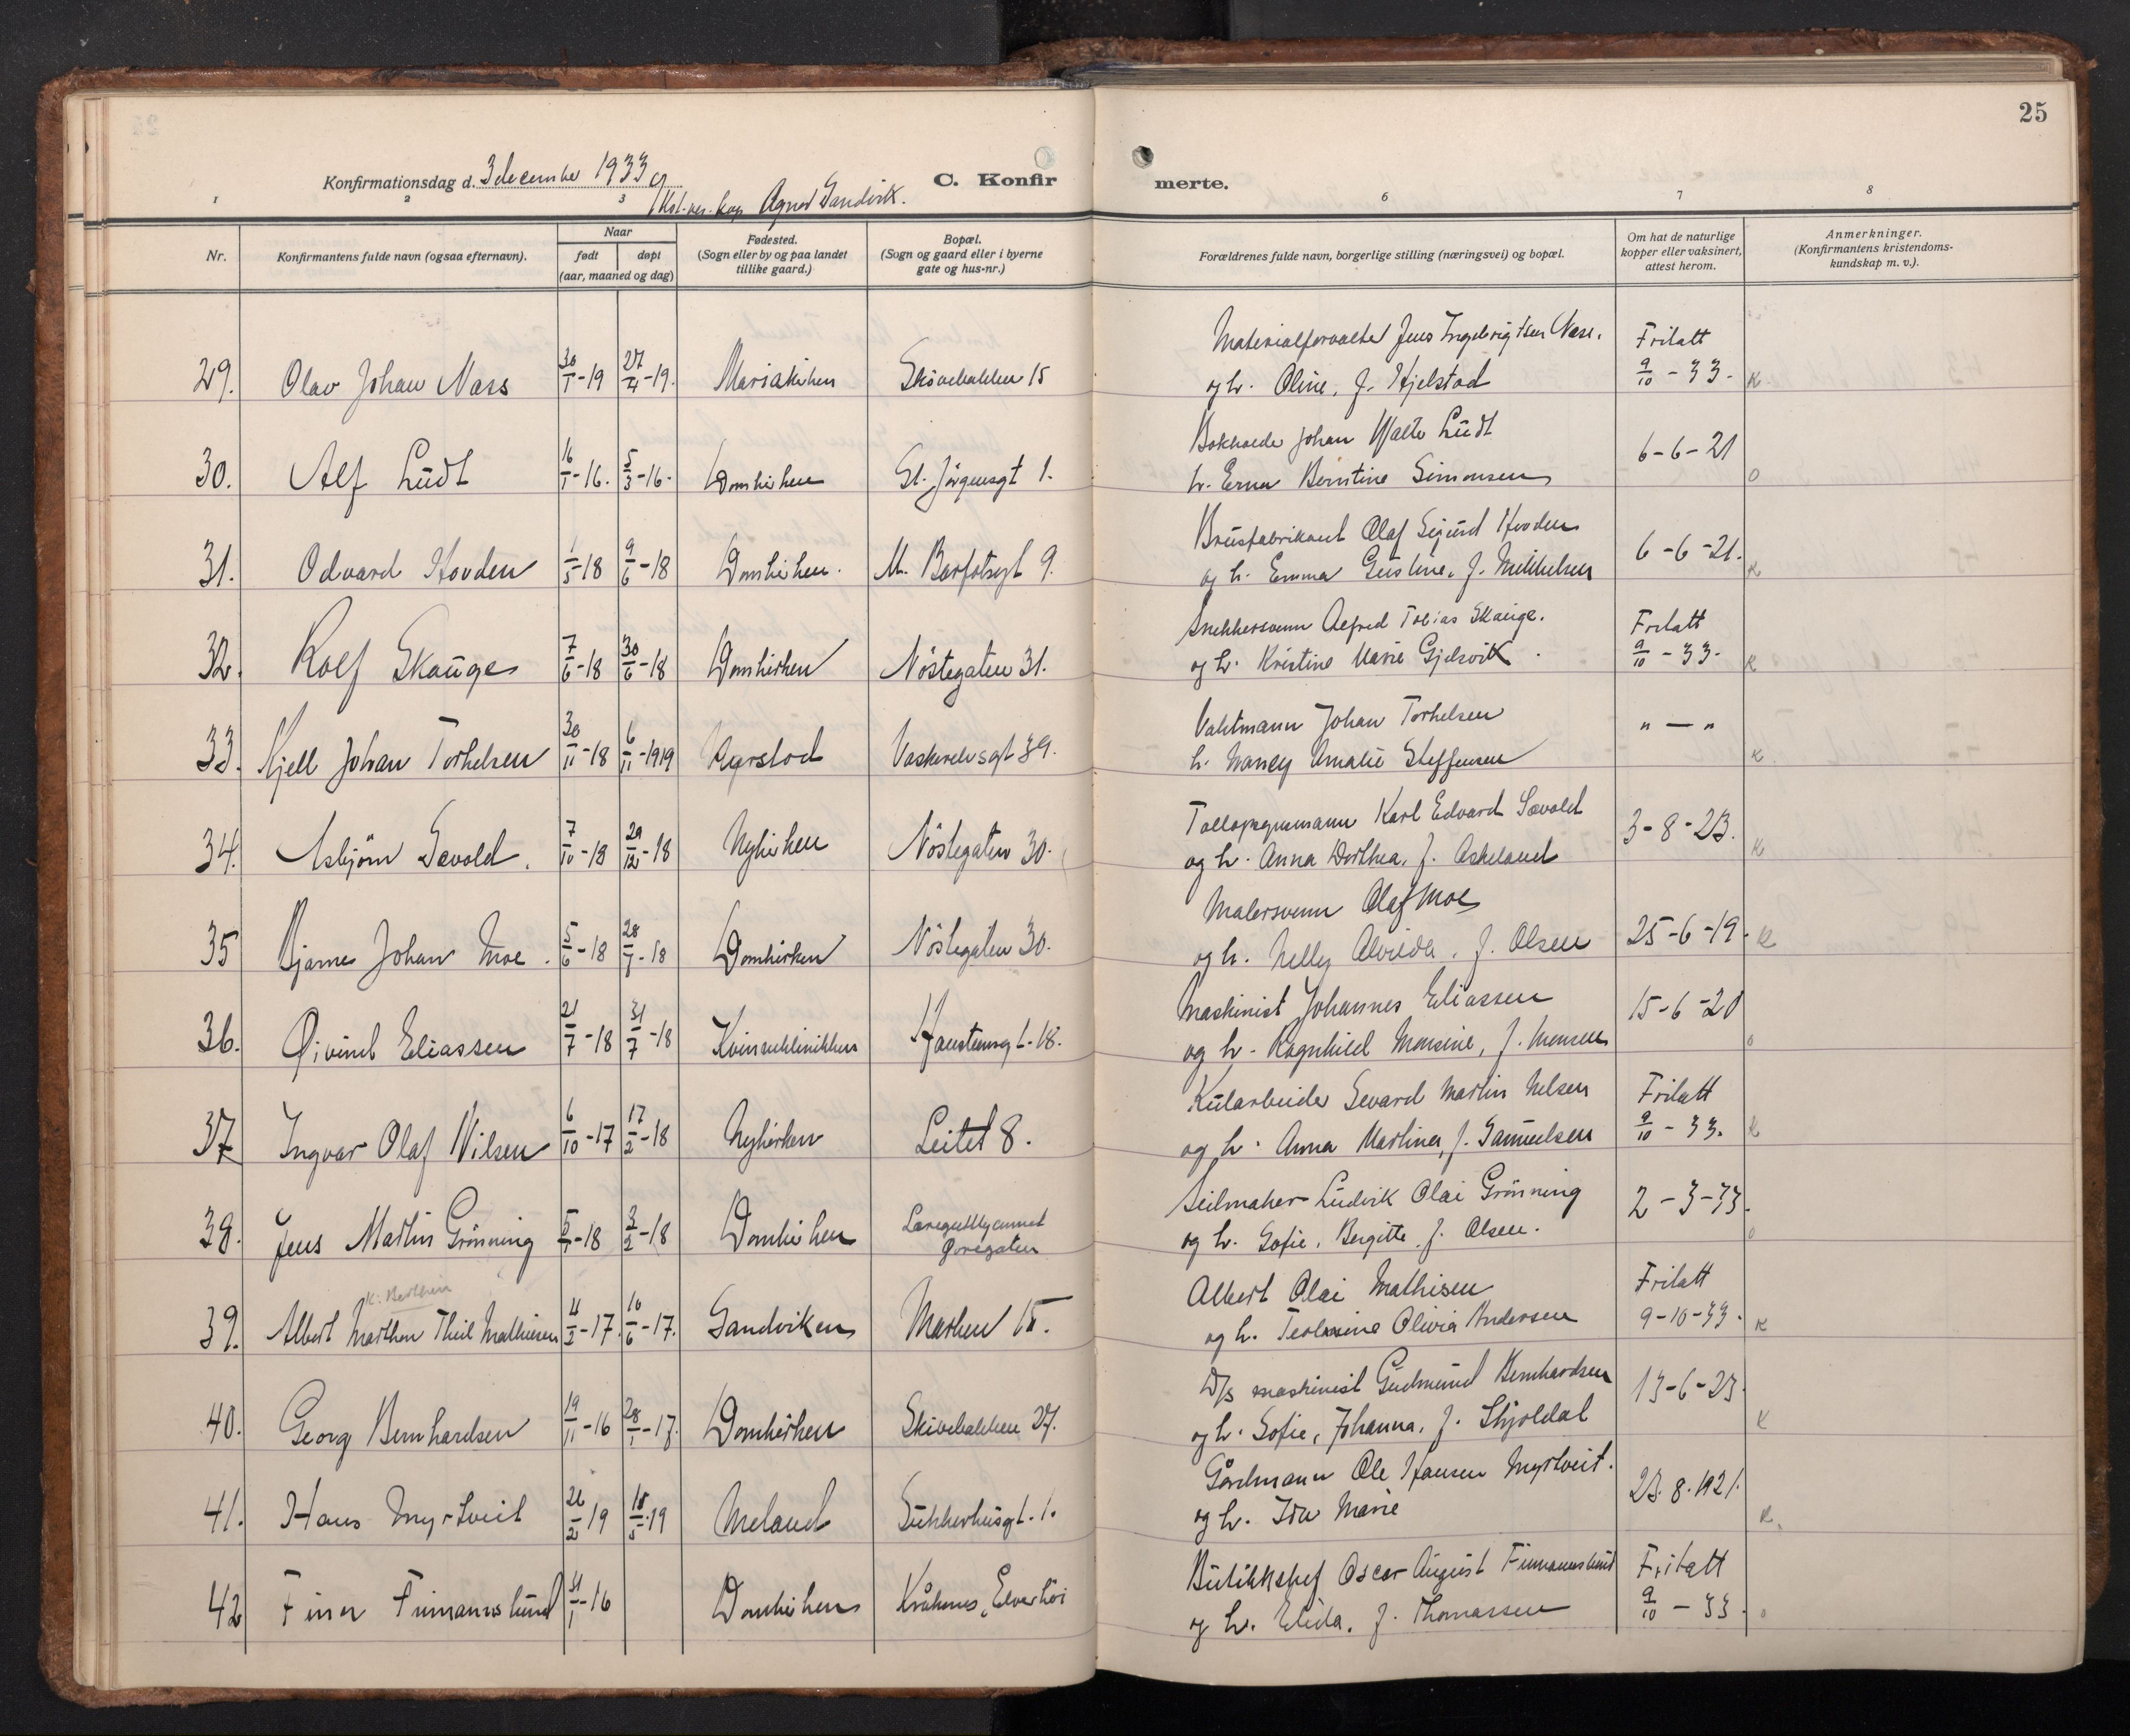 25
Konfirmationsdag d. 3 december 1933
C. Konfirmerte.
Agnar Sandvik.
1 2 3 6 7 8
Nr.
Konfirmantens fulde navn (ogsaa efternavn).
Naar
født døpt
(aar, maaned og dag)
Fødested.
(Sogn eller by og paa landet
tillike gaard.)
Bopæl.
(Sogn og gaard eller i byerne
gate og hus-nr.)
Forældrenes fulde navn, borgerlige stilling (næringsvei) og bopæl.
Om hat de naturlige
kopper eller vaksinert,
attest herom.
Anmerkninger.
(Konfirmantens kristendoms-
kundskap m. v.).
Materialforvalter Jens Ingebrigtsen Næss. Fritatt
29. Olav Johan Næss 30/1-19 27/4-19. Mariakirken Skivebakken 15 og h. Oline, f. Hjelstad 9/10-33. K.
Bokholder Johan Walter Lüdt 6-6-21
30. Alf Lüdt 16/1-16. 5/3-16. Domkirken St. Jörgensgt 1. h. Erna Berntine Simonsen o
Brusfabrikant Olaf Sigurd Hovden 6-6-21.
31. Odvard Hovden 1/5-18 9/6-18 Domkirken. M. Barfotsgt 9. og h. Emma Gustine, f. Mikkelsen K
Snekkersvenn Alfred Tobias Skauge. Fritatt
32. Rolf Skauge 7/6-18 30/6-18 Domkirken Nöstegaten 31. og h. Kristine Marie Gjelsvik. 9/10-33. K
Vaktmann Johan Torkelsen " — "
33. Kjell Johan Torkelsen 30/11-18 6/11-1919 Ayrstad Vaskerelvsgt 39. h. Nancy Amalie Steffensen K
Tollopsynsmann Karl Edvard Sævold 3-8-23.
34. Asbjörn Sævold. 7/10-18 29/12-18 Nykirken Nöstegaten 30. og h. Anna Dorthea, f. Askeland K
Malersvenn Olaf Moe
35 Bjarne Johan Moe. 5/6-18 28/7-18 Domkirken Nöstegaten 30. og h. Nelly Alvilda, f. Olsen 25-6-19. K
Maskinist Johannes Eliassen 15-6-20
36. Øivind Eliassen 21/7-18 31/7-18 Kvinneklinikken Haugteinsgt. 18. og h. Ragnhild Monsine, f. Monsen o
Kularbeider Sevard Martin Nilsen Fritatt
37. Ingvar Olaf Nilsen 6/10-17 17/2-18 Nykirken Leitet 8. og h. Anna Martine, f. Samuelsen 9/10-33. K
Seilmaker Ludvik Olai Grönning 2-3-33.
38. Jens Martin Grönning 5/1-18 3/2-18 Domkirken Læreguthjemmet og h. Sofie, Bergitte, f. Olsen. o
K. Berthin Albert Olai Mathisen Fritatt
39. Albert Marthon Thiel Mathiesen 4/2-17. 10/6-17. Sandviken Marken 15. og h. Teolorine Olivia Andersen 9-10-33. K
D/s maskinist Gudmund Bernhardsen 13-6-23.
40. Georg Bernhardsen 19/11-16 28/1-17. Domkirken Skivebakken 27. og h. Sofie, Johanna, f. Skjoldal K
Gårdmann Ole Hansen Myrtveit. 23.8.1921.
41. Hans Myrtveit 26/2 19 18/5 19 Meland Sukkerhusgt. 1. og h. Ida Marie K.
Butikkchef Oscar August Finmannslund Fritatt
42 Finn Finmannslund 31/1-16 Domkirken Kråkenes, Elverhöi og h. Elida, f. Thomassen 9/10-33. o